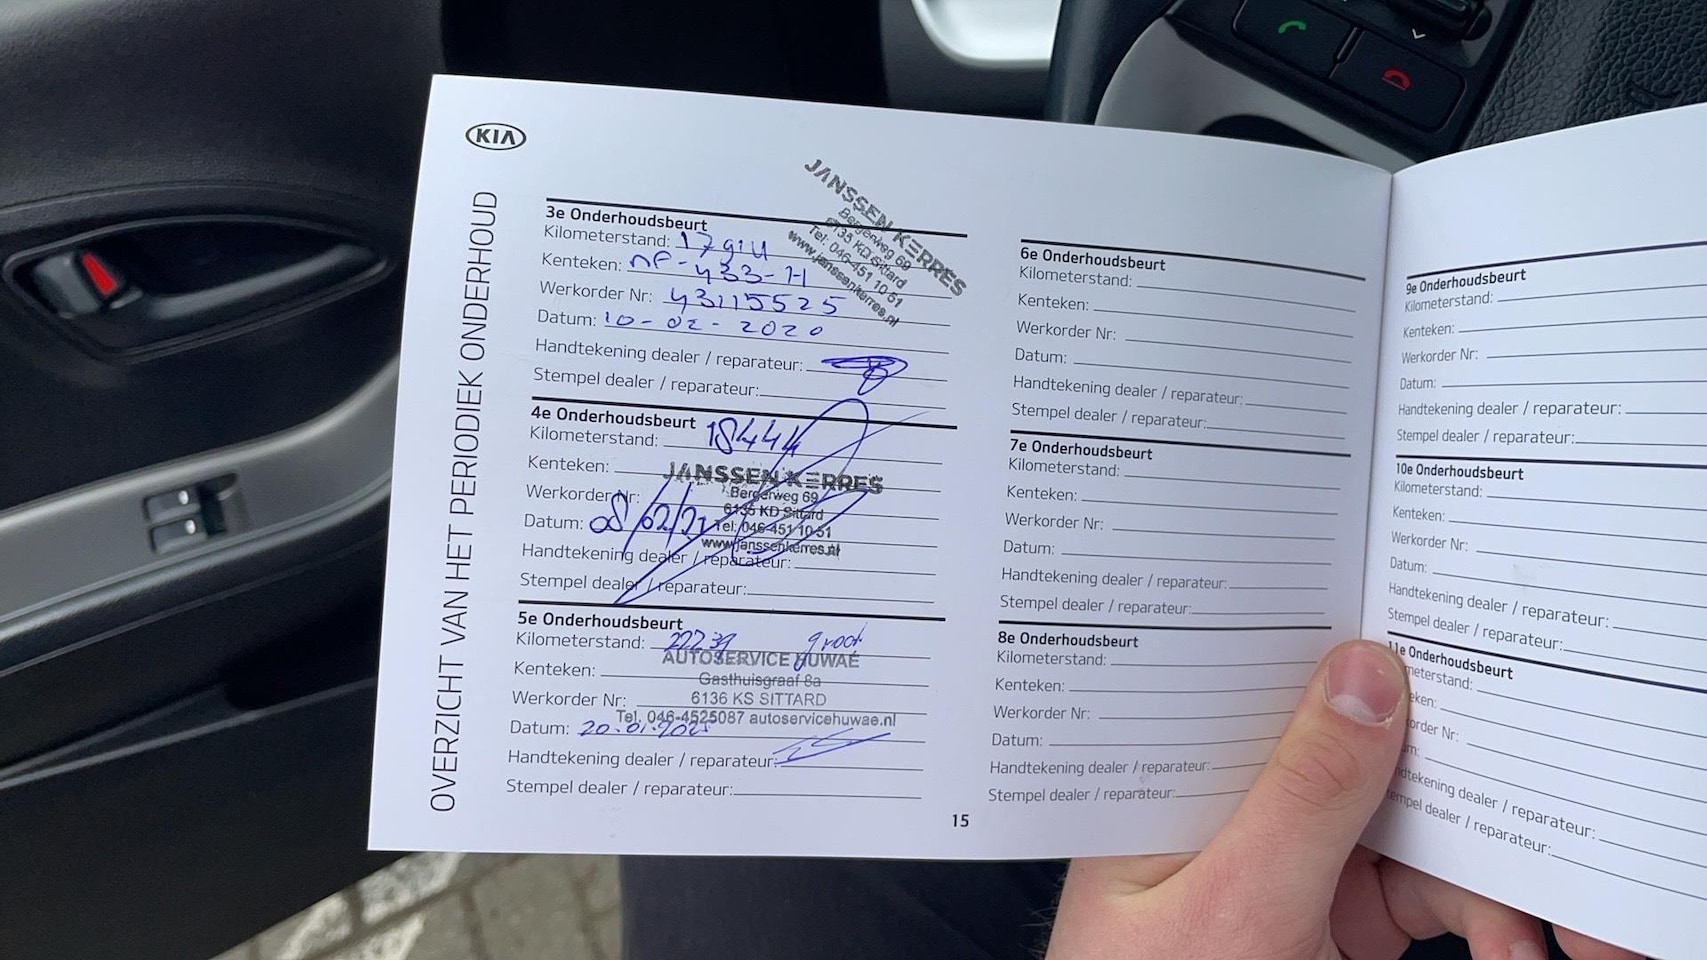 KIA
OVERZICHT VAN HET PERIODIEK ONDERHOUD
3e Onderhoudsbeurt
Kilometerstand:
Kenteken: NF-433-H
Werkorder Nr: 43115525
Datum: 10-02-2020
Handtekening dealer / reparateur:
Stempel dealer / reparateur:
JANSSEN KERRES
Bergerweg 69
6135 KD Sittard
Tel: 046-451 10 51
www.janssenkerres.nl
4e Onderhoudsbeurt
Kilometerstand: 18444
Kenteken:
Werkorder Nr:
Datum: 08/02/21
Handtekening dealer / reparateur:
Stempel dealer / reparateur:
JANSSEN KERRES
Bergerweg 69
6135 KD Sittard
Tel: 046-451 10 51
www.janssenkerres.nl
5e Onderhoudsbeurt
Kilometerstand: 22239 groot
Kenteken:
Werkorder Nr:
Datum: 20-01-2025
Handtekening dealer / reparateur:
Stempel dealer / reparateur:
AUTOSERVICE HUWAE
Gasthuisgraaf 8a
6136 KS SITTARD
Tel. 046-4525087 autoservicehuwae.nl
6e Onderhoudsbeurt
Kilometerstand:
Kenteken:
Werkorder Nr:
Datum:
Handtekening dealer / reparateur:
Stempel dealer / reparateur:
7e Onderhoudsbeurt
Kilometerstand:
Kenteken:
Werkorder Nr:
Datum:
Handtekening dealer / reparateur:
Stempel dealer / reparateur:
8e Onderhoudsbeurt
Kilometerstand:
Kenteken:
Werkorder Nr:
Datum:
Handtekening dealer / reparateur:
Stempel dealer / reparateur:
15
9e Onderhoudsbeurt
Kilometerstand:
Kenteken:
Werkorder Nr:
Datum:
Handtekening dealer / reparateur:
Stempel dealer / reparateur:
10e Onderhoudsbeurt
Kilometerstand:
Kenteken:
Werkorder Nr:
Datum:
Handtekening dealer / reparateur:
Stempel dealer / reparateur:
11e Onderhoudsbeurt
meterstand:
eken:
order Nr:
m:
dtekening dealer / reparateur:
empel dealer / reparateur: